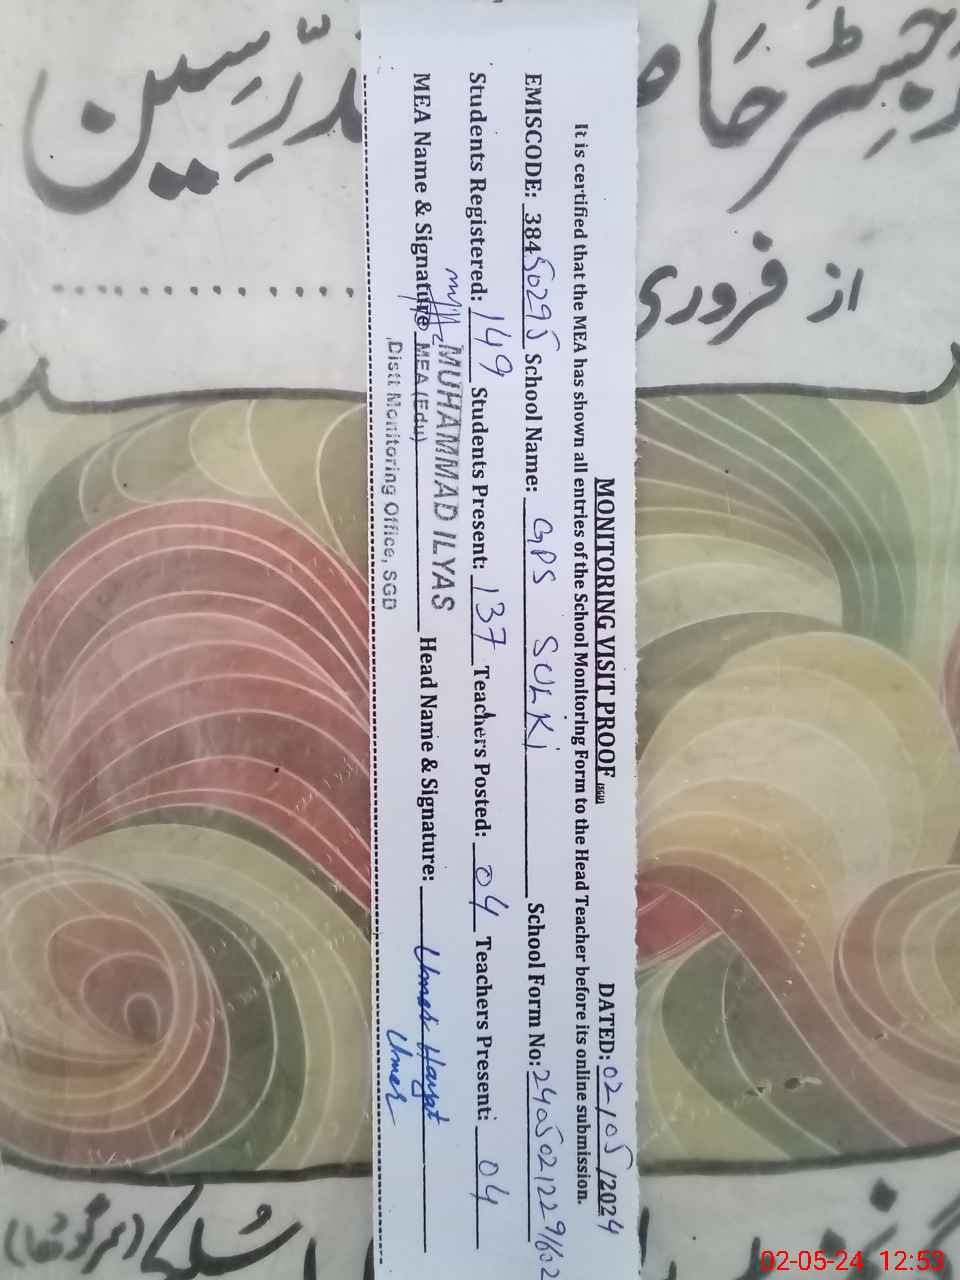 رجسٹر حاضری مدرسین
از فروری
MONITORING VISIT PROOF (SGD)
DATED: 02/05/2024
It is certified that the MEA has shown all entries of the School Monitoring Form to the Head Teacher before its online submission.
EMISCODE: 38450295 School Name: GPS SULKI School Form No: 2405021229602
Students Registered: 149 Students Present: 137 Teachers Posted: 04 Teachers Present: 04
MEA Name & Signature Head Name & Signature: Umer Hayat
Umer
MUHAMMAD ILYAS
MEA (Edu)
Distt Monitoring Office, SGD
(سرگودھا)
02-05-24 12:53